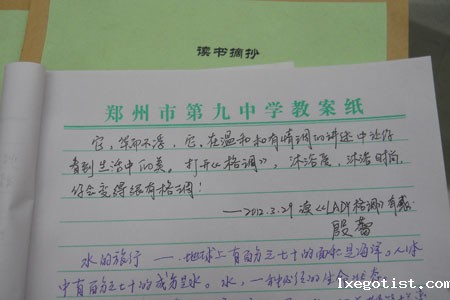 读书摘抄
郑州市第九中学教案纸
它,华而不浮,它,在温和和有情调的讲述中让你
看到生活中的美。打开《格调》,沐浴爱,沐浴时尚,
你会变得很有格调!
——2012.3.29 读《LADY格调》有感
殷蕾
水的旅行——地球上有百分之七十的面积是海洋。人体
中有百分之七十的成分是水。水,一种神秘的生命状态
lxegotist.com